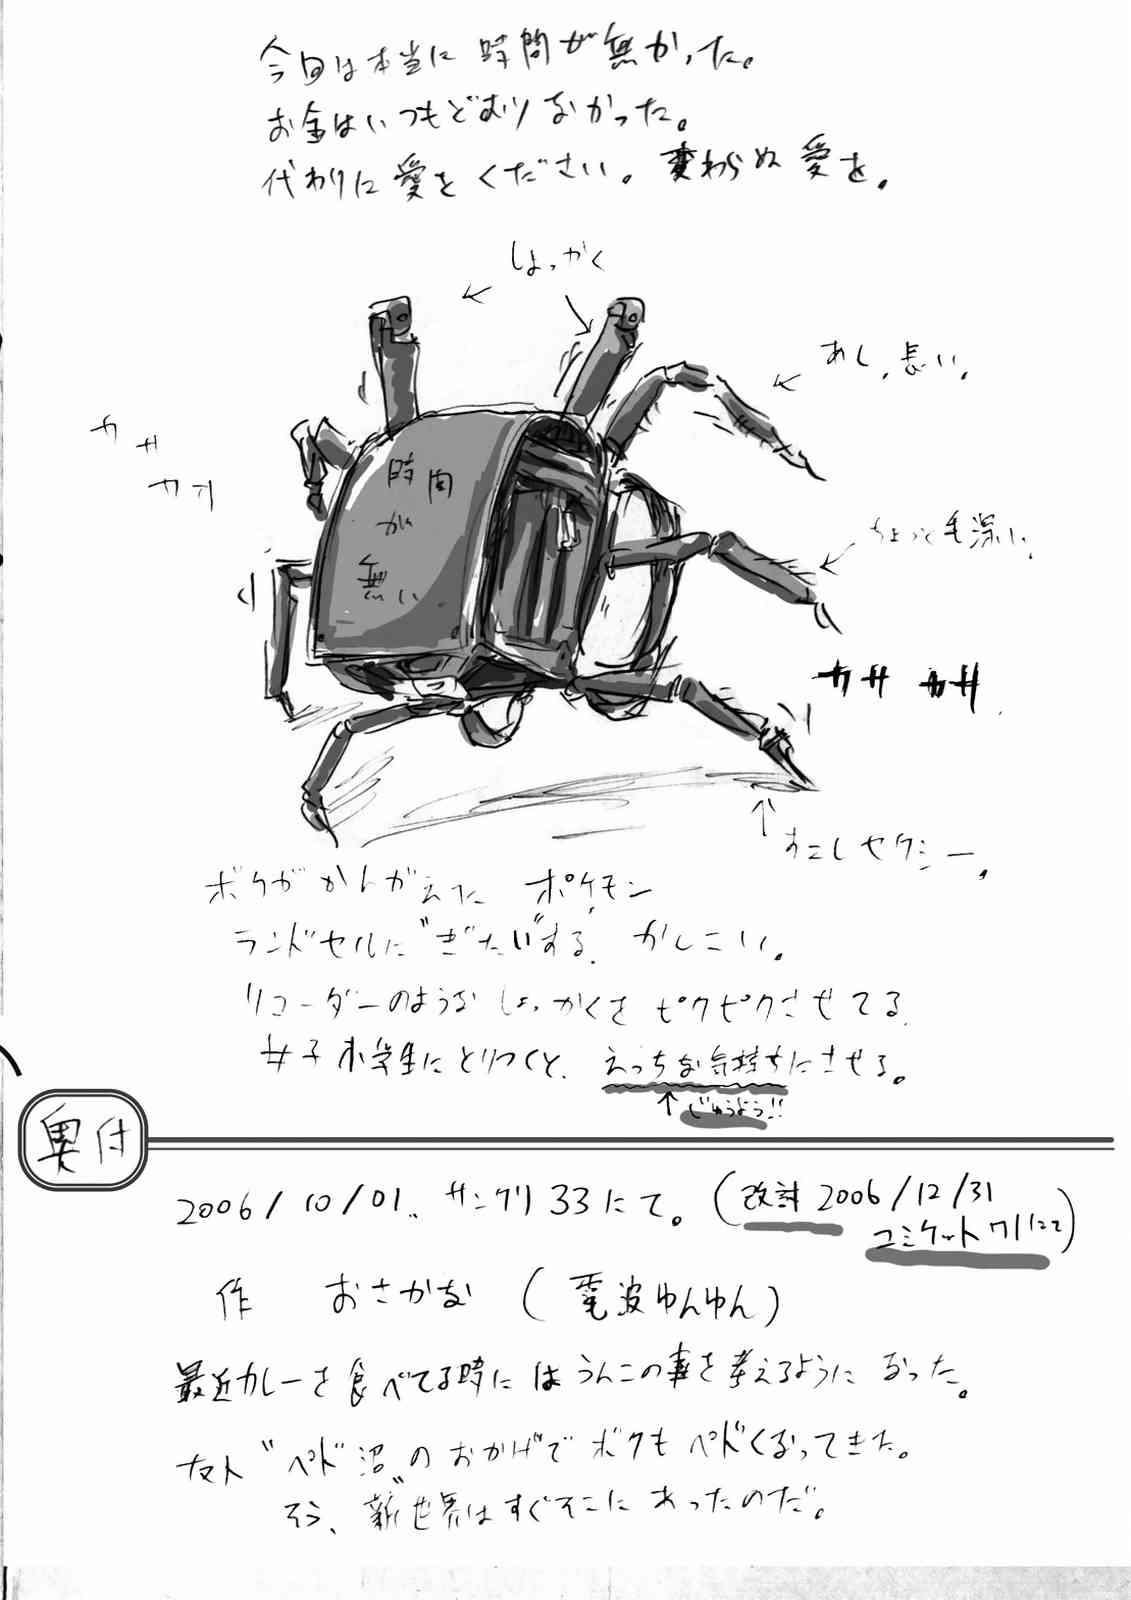 今回は本当に時間が無かった。
お金はいつもどおりなかった。
代わりに愛をください。変わらぬ愛を。
しょっかく
あし、長い。
カサ
カサ
時間
が
無い
ちょっと毛深い。
カサ カサ
すこしセクシー。
ボクがかんがえた ポケモン
ランドセルに"ぎたい"する。かしこい。
リコーダーのようなしょっかくをピクピクさせてる。
女子小学生にとりつくと、えっちな気持ちにさせる。
じゅうよう!!
奥付
2006/10/01、サンクリ33にて。(改訂 2006/12/31
コミケット71にて)
作 おさかな (電波ゆんゆん)
最近カレーを食べてる時にはうんこの事を考えるようになった。
友人"ペド沼"のおかげでボクもペドくなってきた。
そう、新世界はすぐそこにあったのだ。